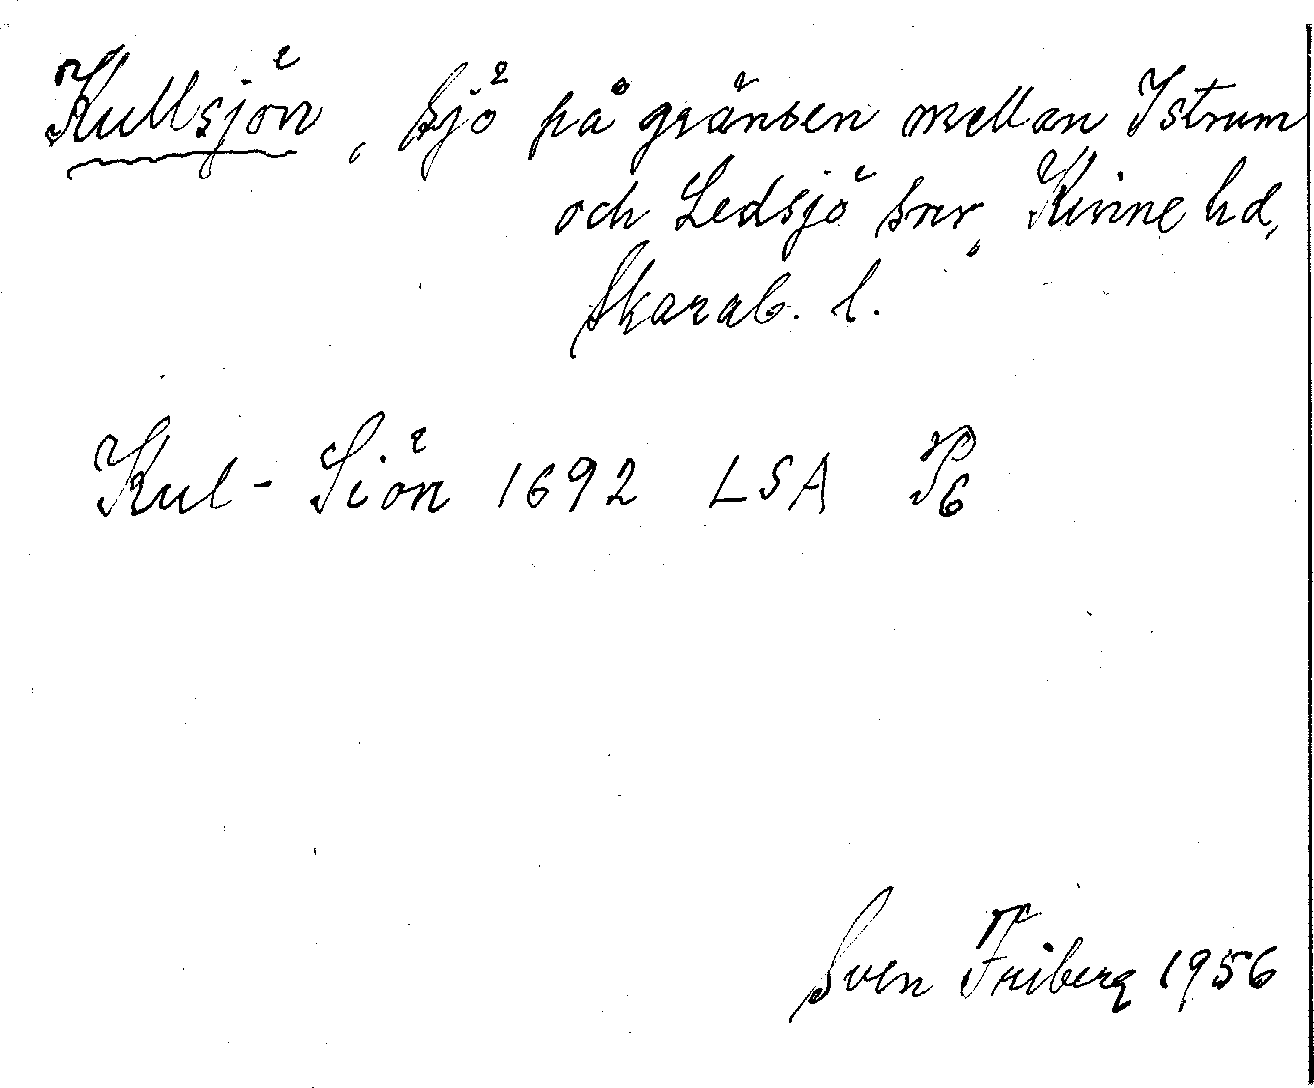 Kullsjön, sjö på gränsen mellan Istrum
och Ledsjö snr, Kinne hd,
Skarab. l.
Kul-Siön 1692 LSA P6
Sven Friberg 1956